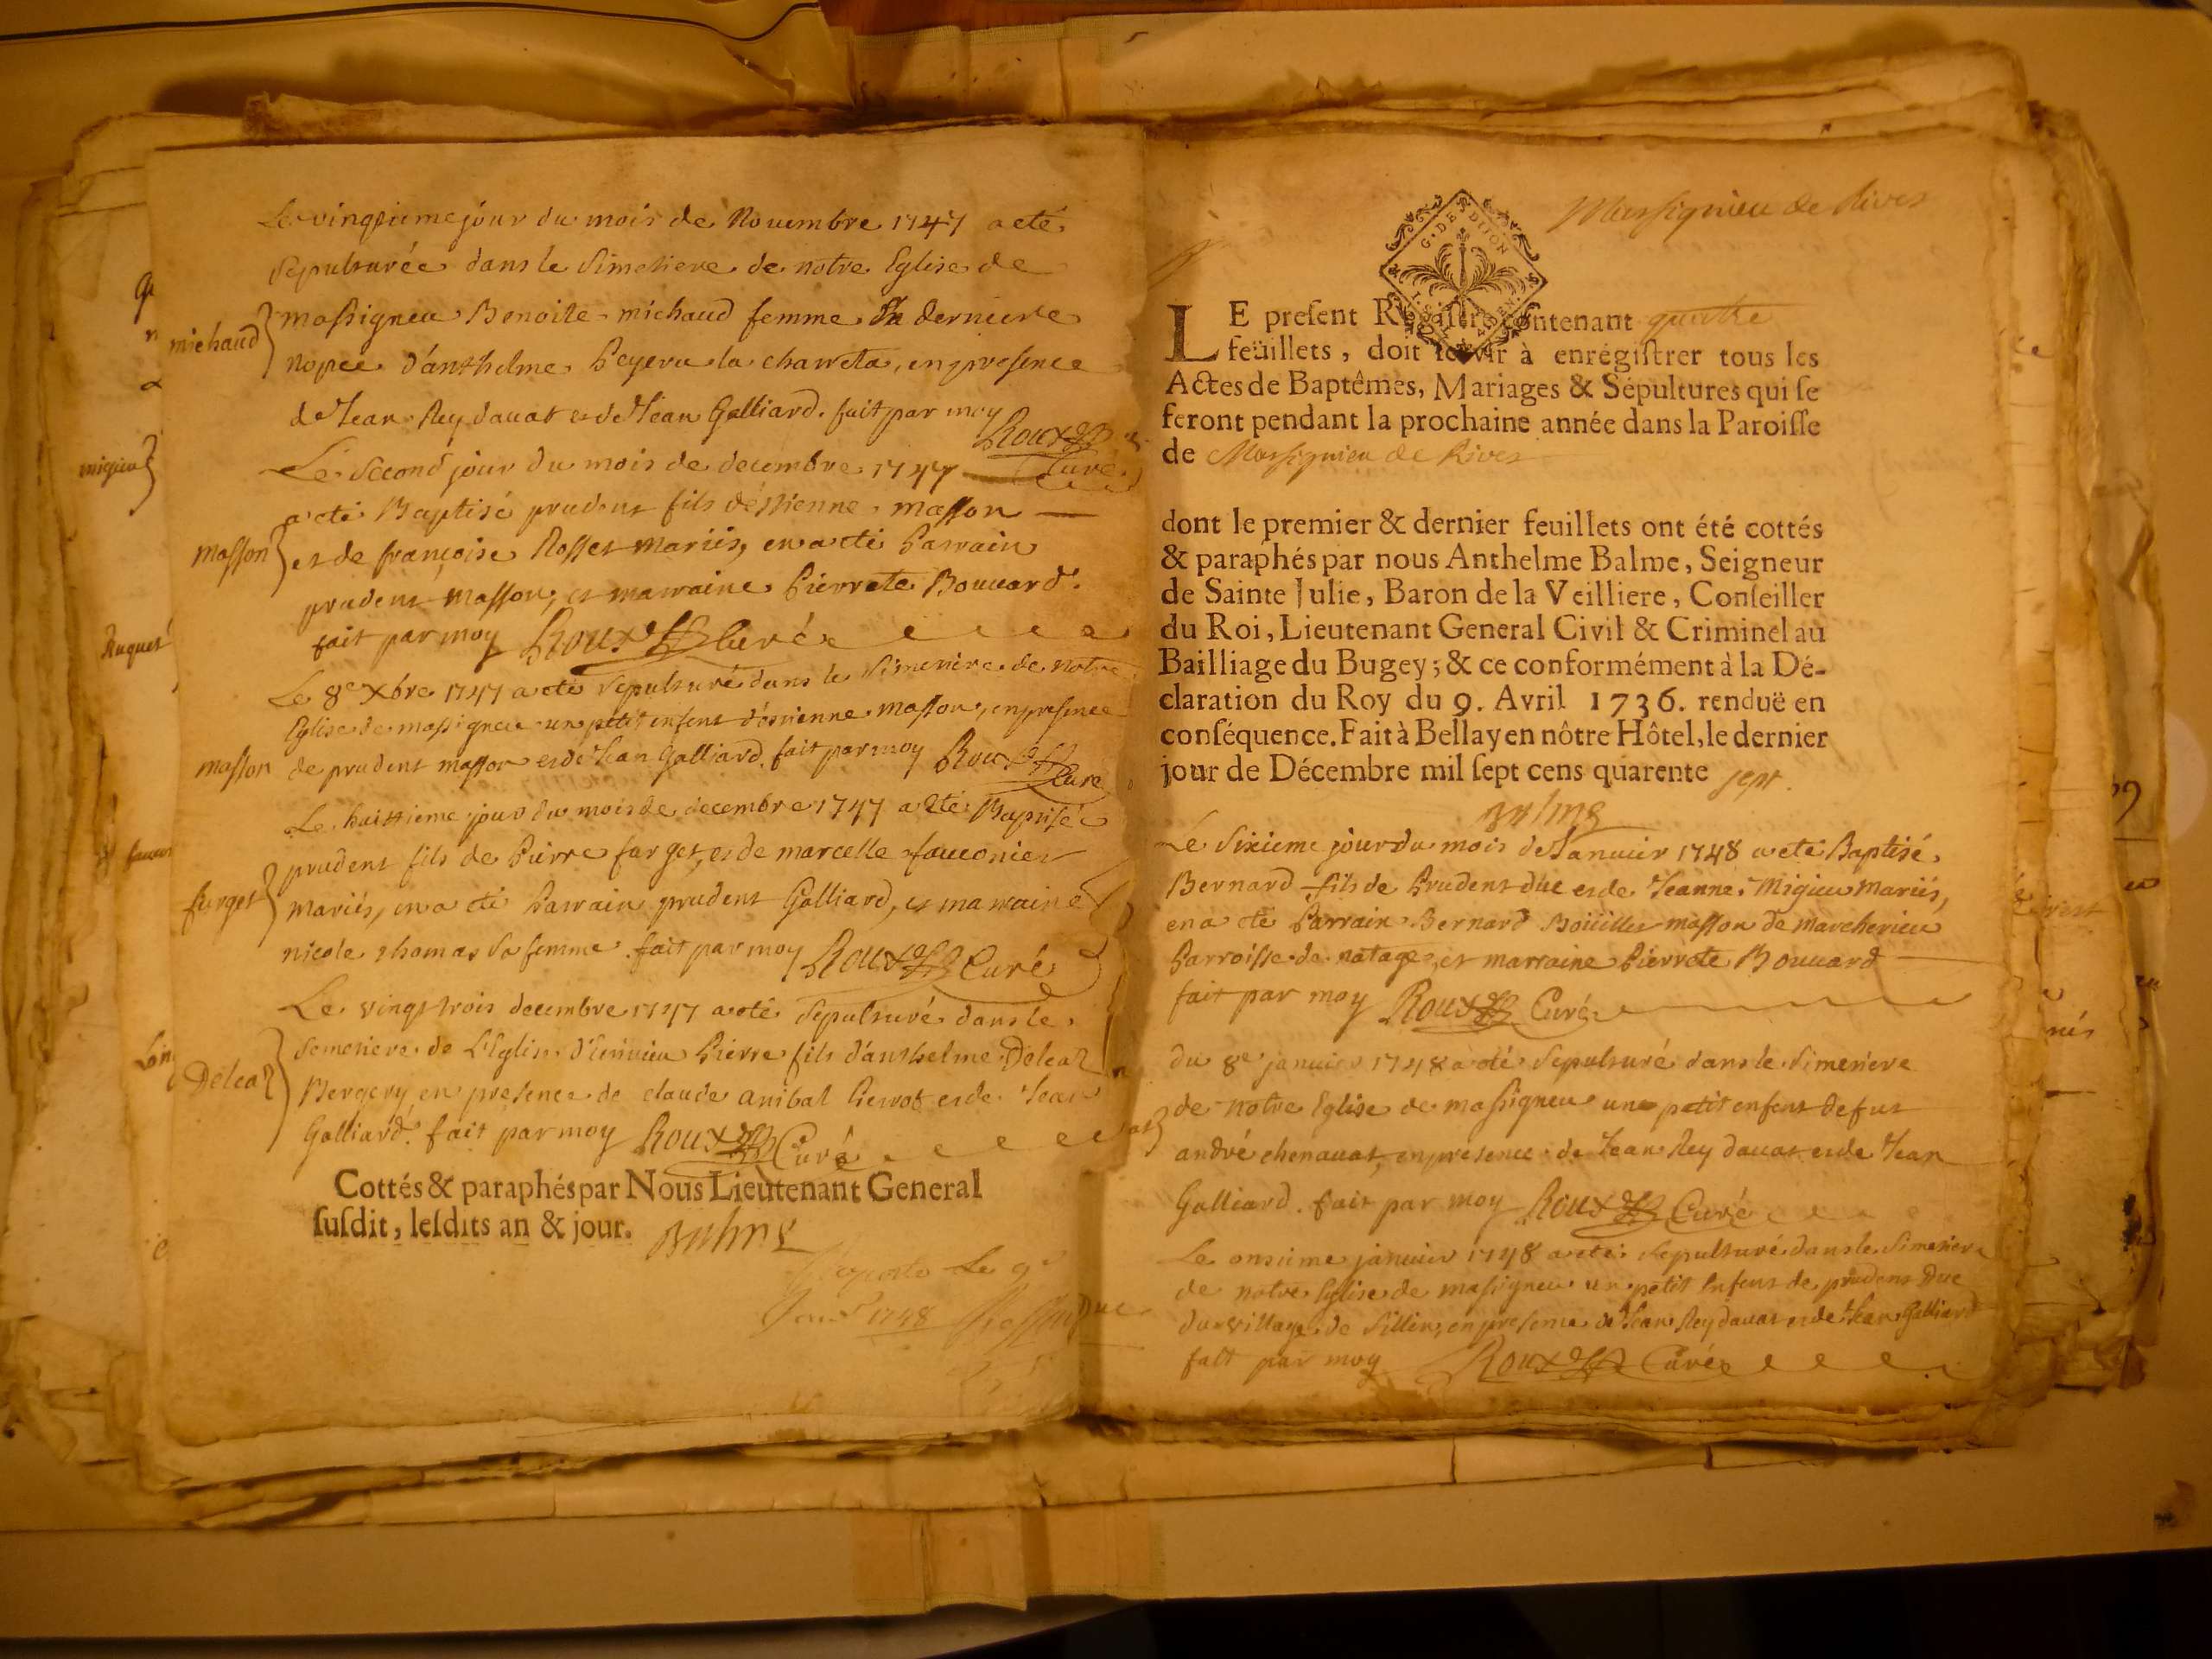 Le vingtieme jour du mois de Novembre 1747 a eté
sepulturée dans le Simetiere de notre Eglise de
michaud
massigneu Benoite michaud femme En derniere
nopce d'anthelme Peyera la charreta, en presence
de Jean Rey davat et de Jean Galliard. fait par moy
Roux Curé
Le second jour du mois de decembre 1747
a eté Baptisé prudent fils d'éttienne masson
masson
et de françoise Rosset mariés, en a eté Parrain
prudent masson, et marraine Pierrete Bouvard.
fait par moy Roux Curé
Le 8e Xbre 1747 a eté sepulturé dans le Simetiere de notre
Eglise de massigneu un petit enfent d'éttienne masson, en presence
masson
de prudent masson et de Jean Galliard. fait par moy Roux Curé
Le huittieme jour du mois de decembre 1747 a eté Baptisé
prudent fils de Pierre farget, et de marcelle fauconier
farget
mariés, en a eté Parrain prudent Galliard, et marraine
nicole thomas sa femme. fait par moy Roux Curé
Le vingt trois decembre 1747 a eté sepulturé dans le
Semetiere de L'Eglise Pierre fils d'anthelme Deleaz
Deleaz
Bergery en presence de claude anibal Pierrot et de Jean
Galliard. fait par moy Roux Curé
Cottés & paraphés par Nous Lieutenant General
susdit, lesdits an & jour. Balme
Le 9e
1748
Massignieu de Rives
G. DE DIJON
LE present Registre contenant quatre
feüillets, doit servir à enrégistrer tous les
Actes de Baptêmes, Mariages & Sépultures qui se
feront pendant la prochaine année dans la Paroisse
de Massignieu de Rives
dont le premier & dernier feuillets ont été cottés
& paraphés par nous Anthelme Balme, Seigneur
de Sainte Julie, Baron de la Veilliere, Conseiller
du Roi, Lieutenant General Civil & Criminel au
Bailliage du Bugey; & ce conformément à la Dé-
claration du Roy du 9. Avril 1736. renduë en
conséquence. Fait à Bellay en nôtre Hôtel, le dernier
jour de Décembre mil sept cens quarente sept.
Balme
Le Sixieme jour du mois de Janvier 1748 a eté Baptisé
Bernard fils de Prudent duc et de Jeanne Migieu mariés,
en a eté Parrain Bernard masson de marcherieu
Parroisse de natage, et marraine Pierrete Bouvard
fait par moy Roux Curé
du 8e janvier 1748 a eté sepulturé dans le Simetiere
de notre Eglise de massigneu un petit enfent de fut
andré chenavat, en presence de Jean Rey davat et de Jean
Galliard. fait par moy Roux Curé
Le onsieme janvier 1748 a eté sepulturé dans le Simetiere
de notre Eglise de massigneu un petit Enfent de prudent Duc
du village de Sillin, en presence de Jean Rey davat et de Jean Galliard
fait par moy Roux Curé